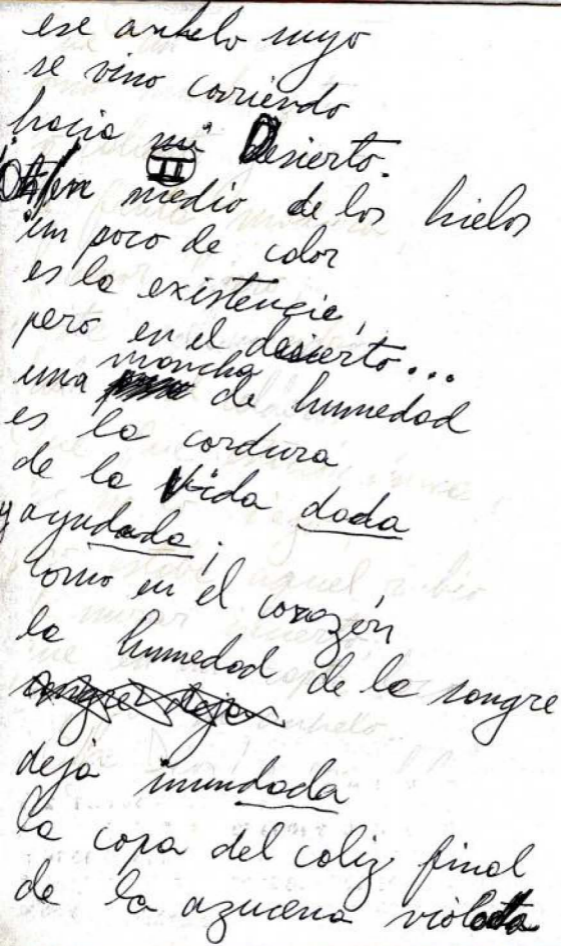 ese anhelo suyo
se vino corriendo
hacia mi Desierto.
II
en medio de los hielos
un poco de calor
es la existencia,
pero en el desierto...
una mancha de humedad
es la cordura
de la Vida dada
y ayudada;
como en el corazón
la humedad de la sangre
deja inundada
la copa del caliz final
de la azucena violada